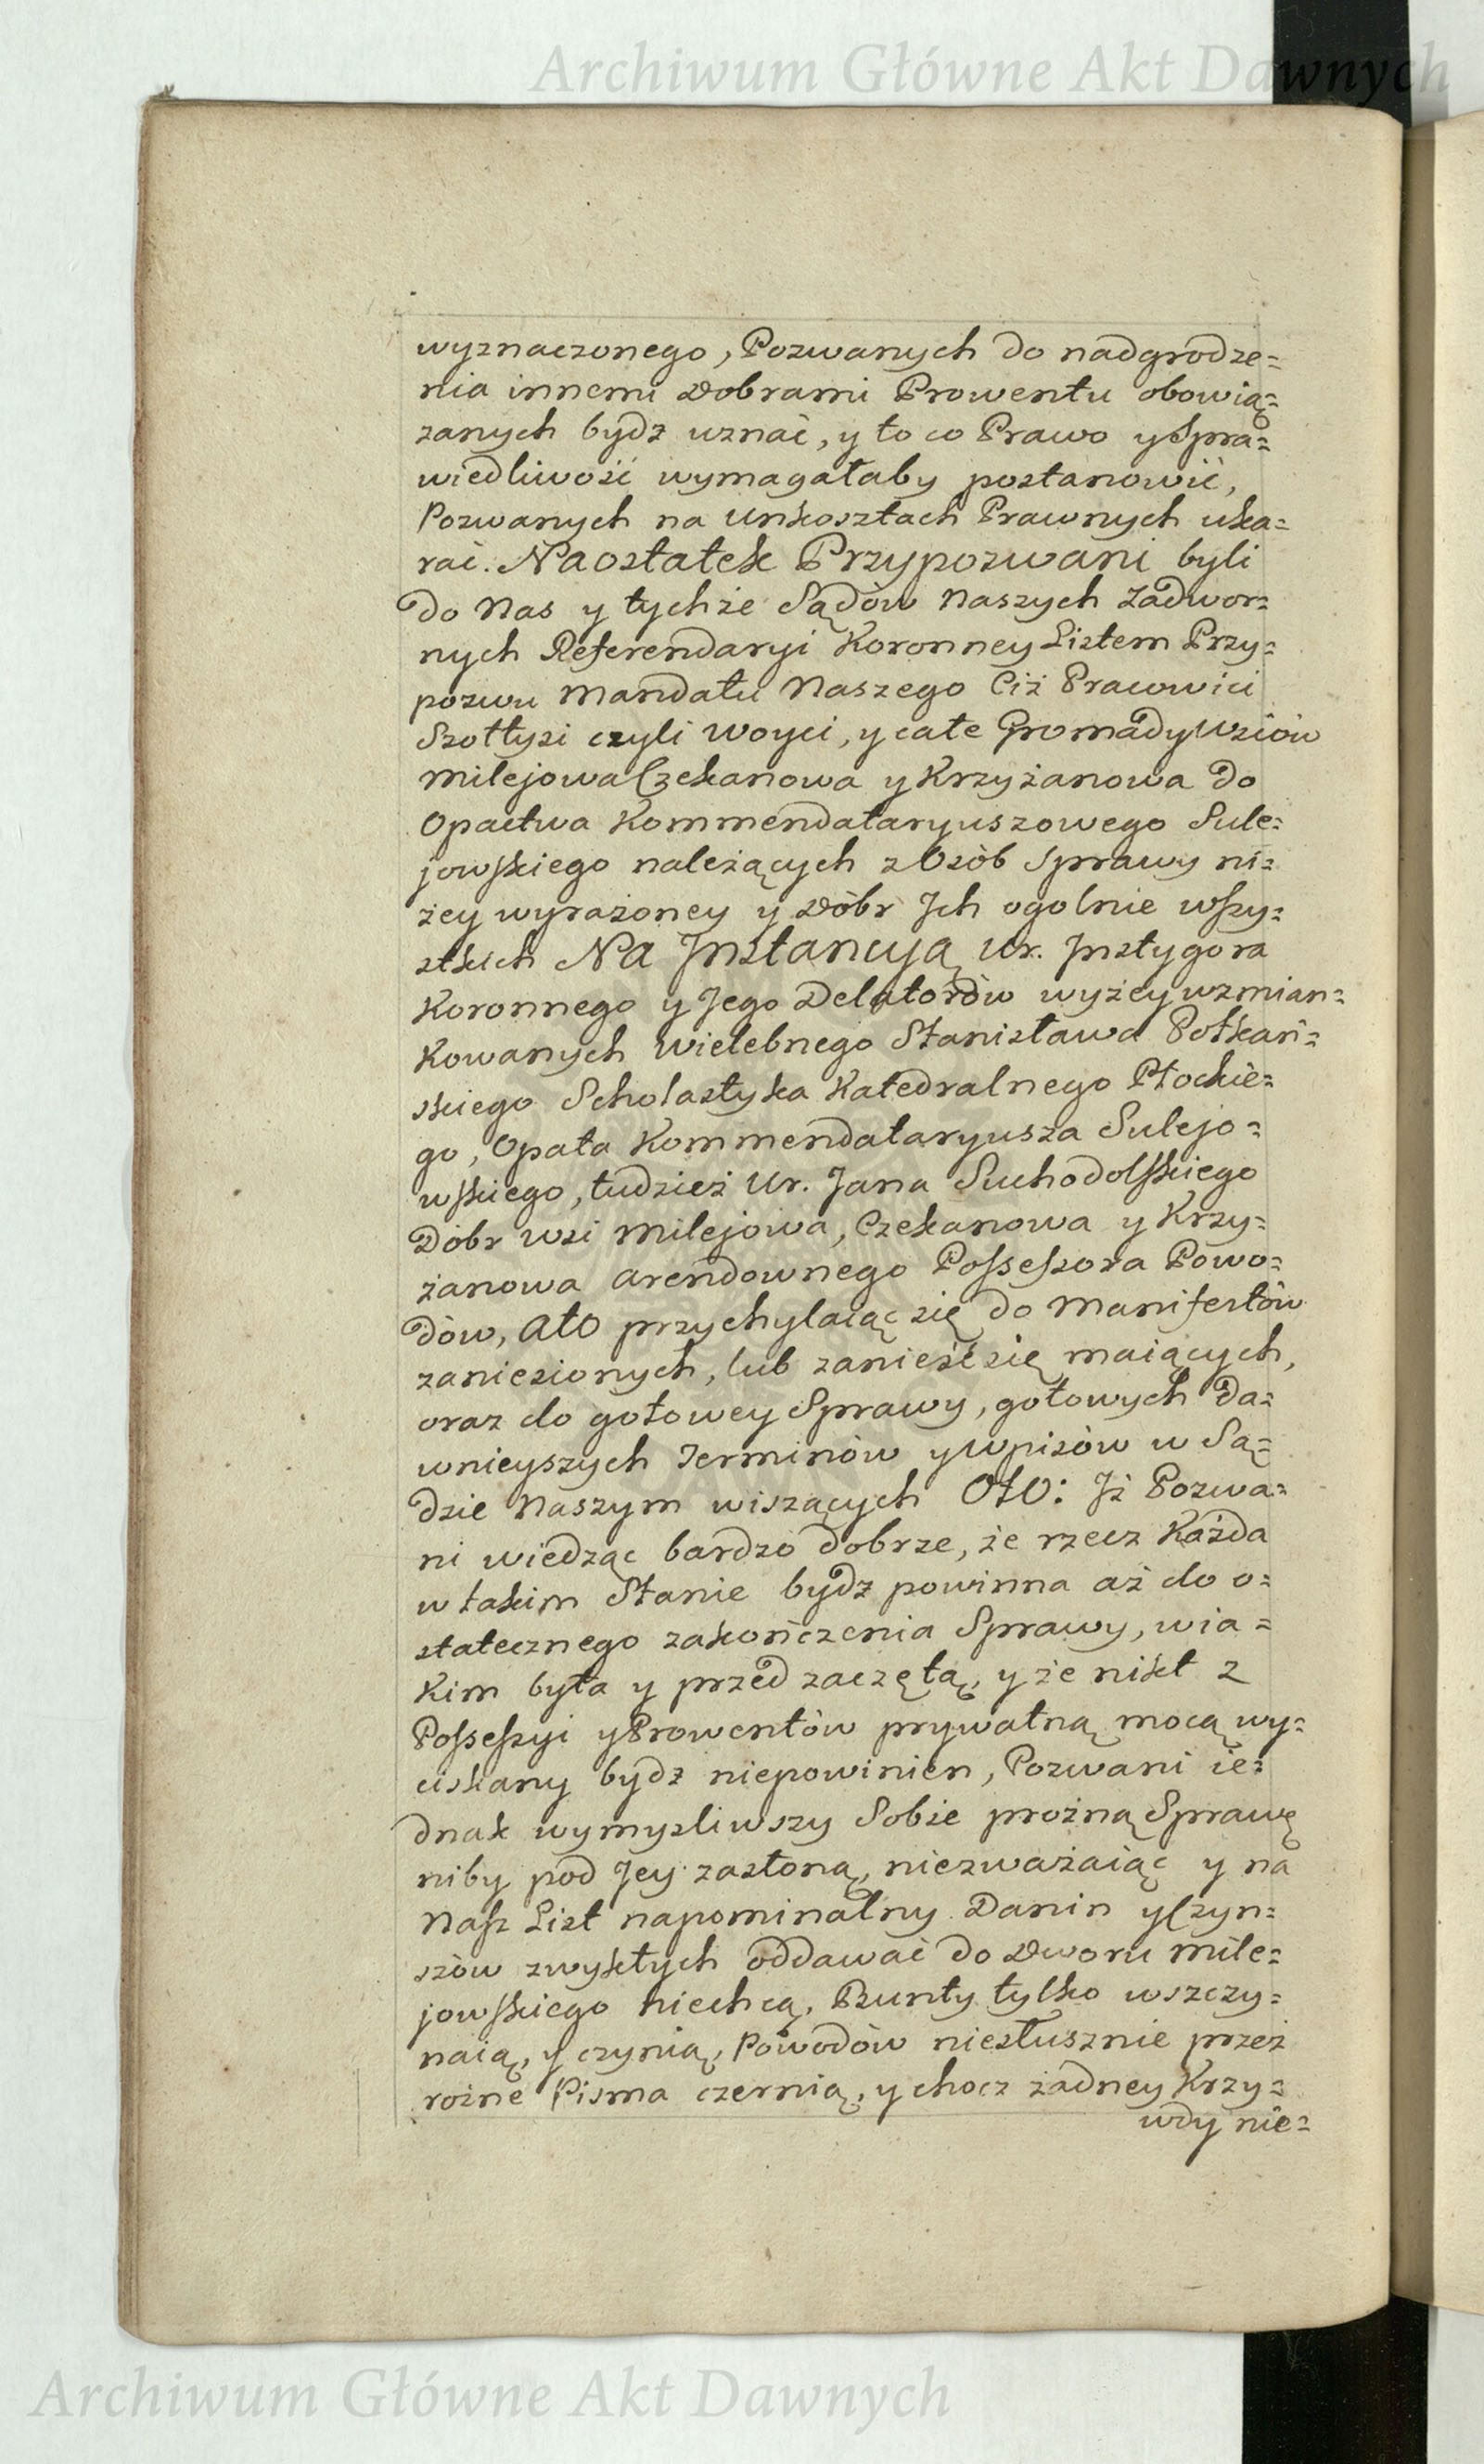 Archiwum Główne Akt Dawnych
wyznaczonego, Pozwanych do nadgrodze=
nia innemi Dobrami Prowentu obowią=
zanych bydz uznać, y to co Prawo y Spra=
wiedliwość wymagałaby postanowić,
Pozwanych na Unkosztach Prawnych uka=
rać. Naostatek Przypozwani byli
do Nas y tychże Sądów Naszych Zadwor=
nych Referendaryi Koronney Listem Przy=
pozwu Mandatu Naszego Ciż Pracowici
Szołtysi czyli Woyci, y całe Gromady Wsiów
Milejowa Czekanowa y Krzyżanowa do
Opactwa Kommendataryuszowego Sule=
jowskiego należących z Osób Sprawy ni=
żey wyrażoney y Dóbr Jch ogolnie wszy=
stkich Na Jnstancyą Ur. Jnstygora
Koronnego y Jego Delatorów wyżey wzmian=
kowanych Wielebnego Stanisława Potkań=
skiego Scholastyka Katedralnego Płockie=
go, Opata Kommendataryusza Sulejo=
wskiego, tudzież Ur. Jana Suchodolskiego
Dóbr Wsi Milejowa, Czekanowa y Krzy=
żanowa arendownego Possessora Powo=
dów, Ato przychylaiąc się do Manifestów
zaniesionych, lub zanieść się maiących,
oraz do gotowey Sprawy, gotowych Da=
wnieyszych Terminów y Wpisów w Są=
dzie Naszym wiszących Oto: Jż Pozwa=
ni wiedząc bardzo dobrze, że rzecz Każda
w takim Stanie bydz powinna aż do o=
statecznego zakończenia Sprawy, w ia=
kim była y przed zaczętą, y że nikt z
Possessyi y Prowentów prywatną mocą wy=
ciskany bydz niepowinien, Pozwani ie=
dnak wymysliwszy Sobie prożną Sprawę
niby pod Jey zasłoną, niezważaiąc y na
Nasz List napominalny Danin y Czyn=
szów zwykłych oddawać do Dworu Mile=
jowskiego niechcą, Bunty tylko wszczy=
naią, y czynią, Powodów niesłusznie przez
rożne Pisma czernią, y chocz żadney Krzy=
wdy nie=
Archiwum Główne Akt Dawnych